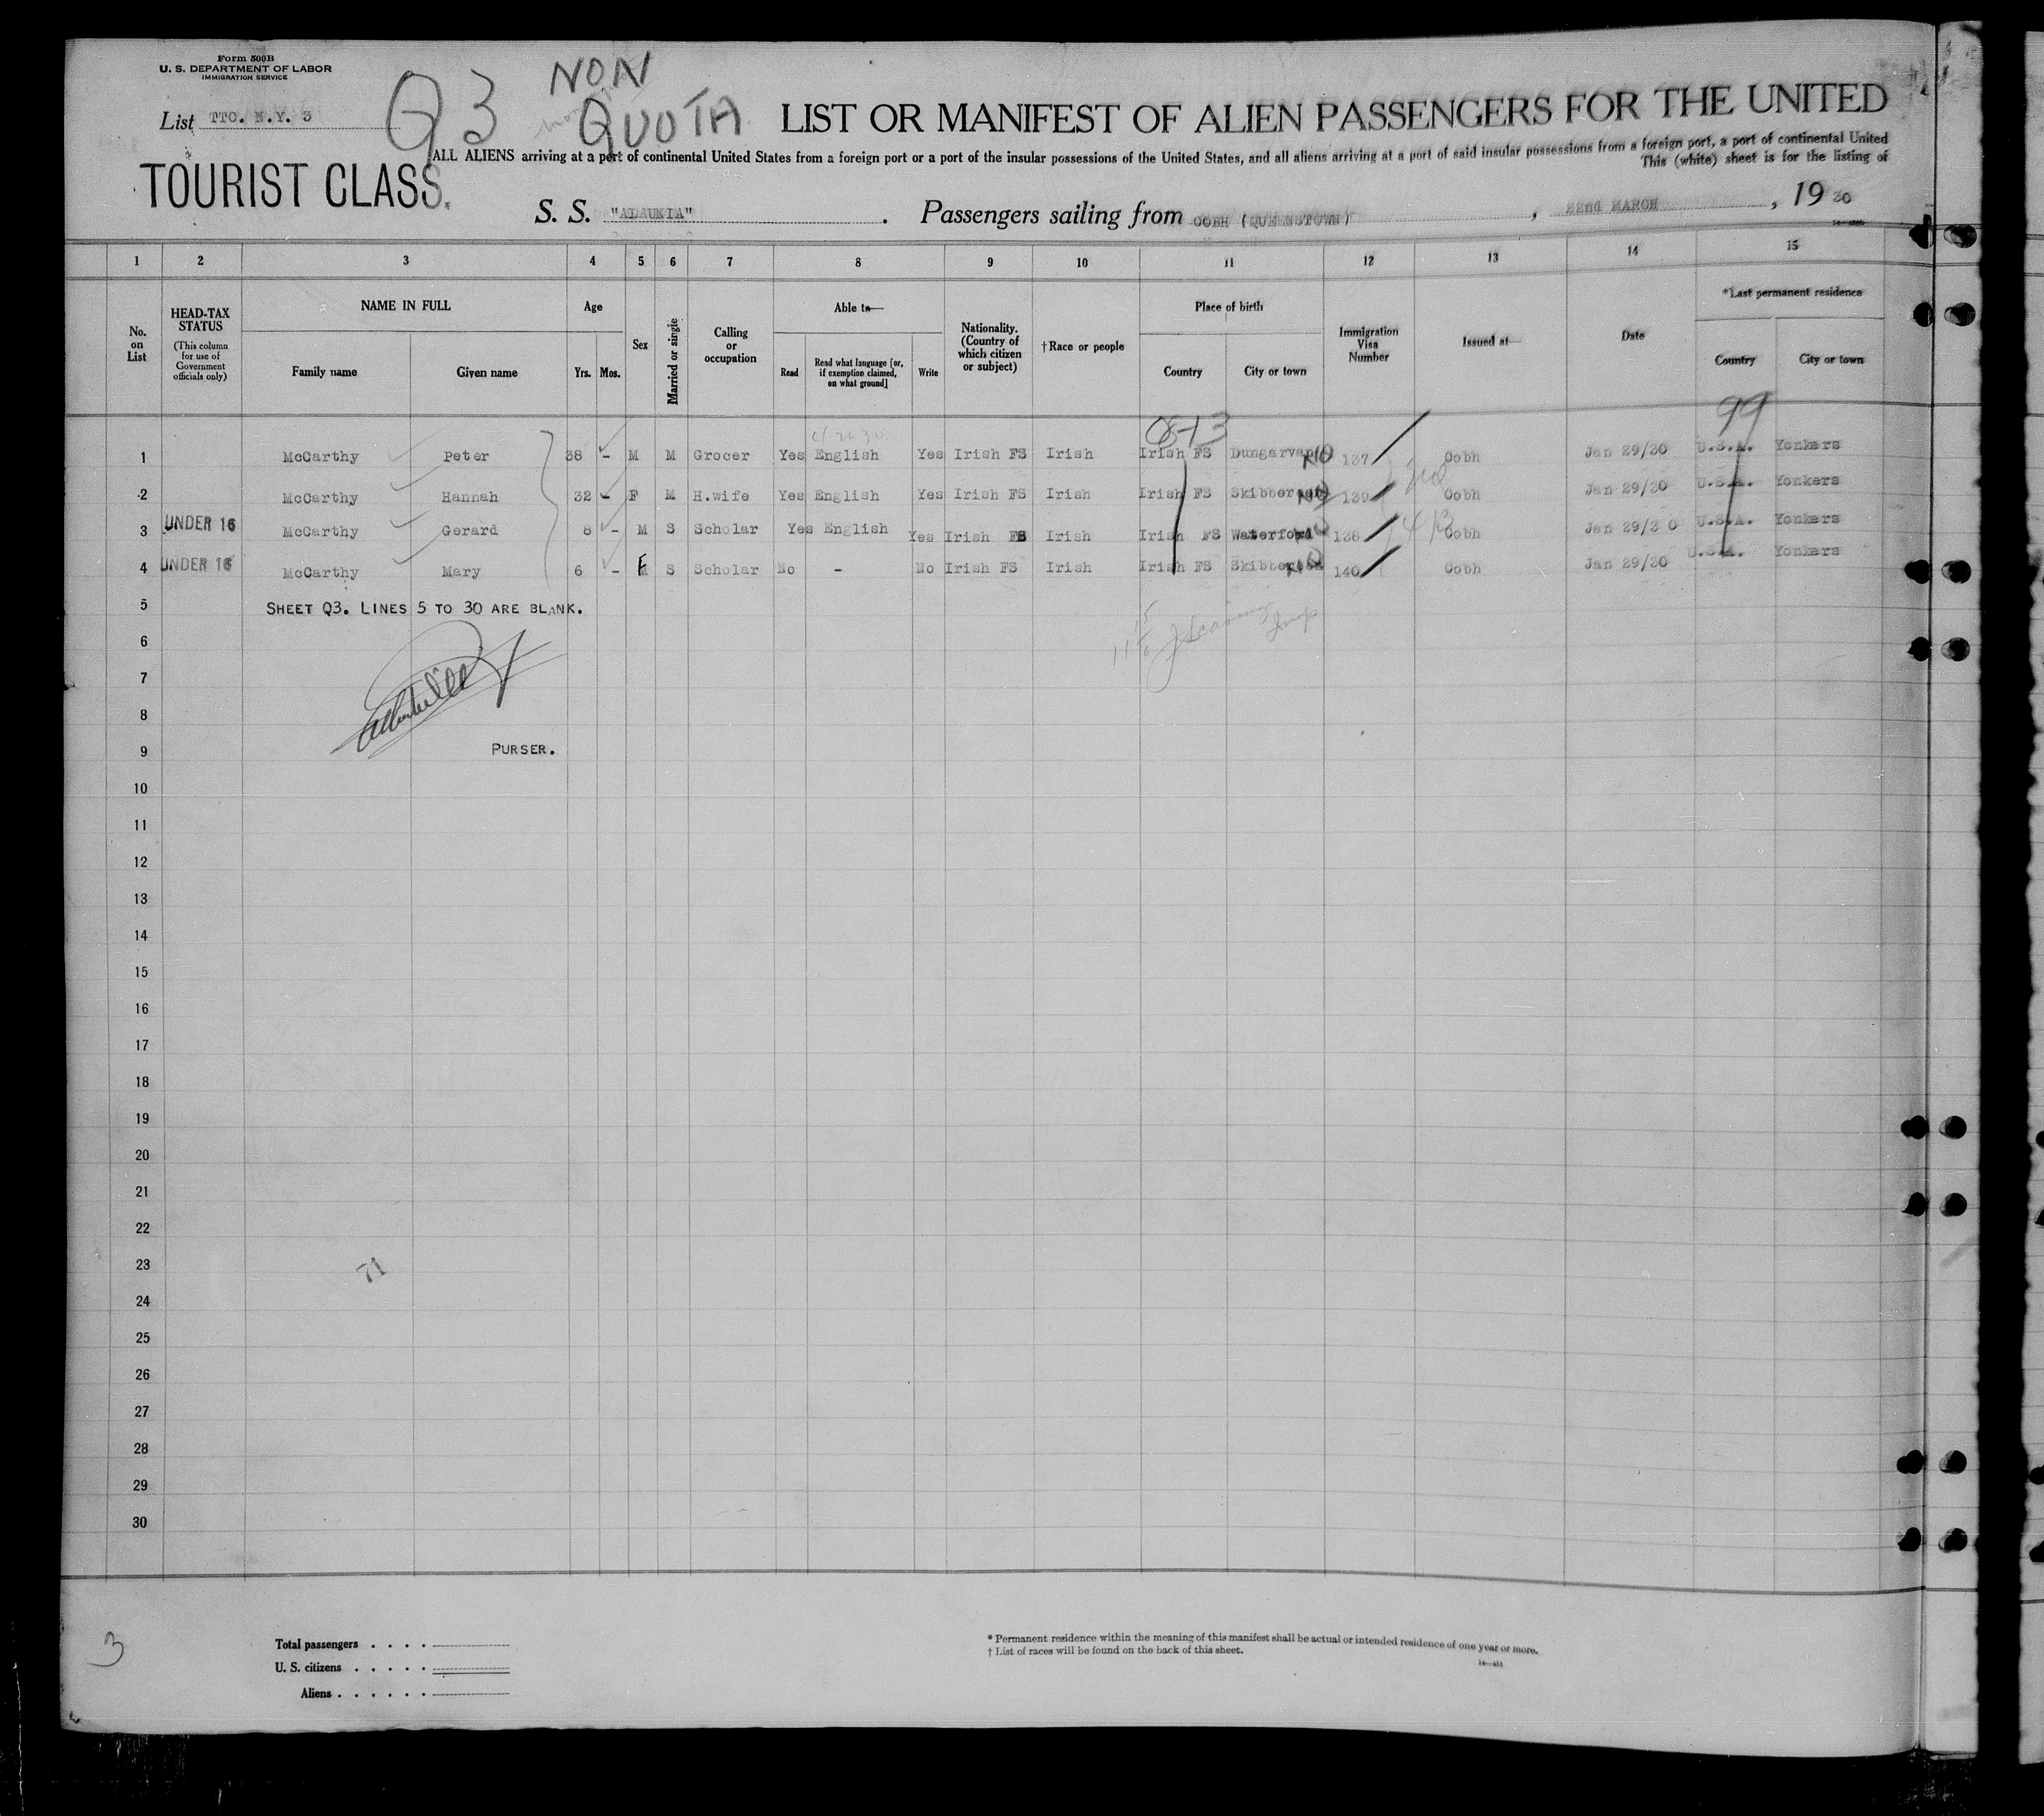 Form 500B
U. S. DEPARTMENT OF LABOR
IMMIGRATION SERVICE
List TTC. N.Y. 3
Q3 NON QUOTA
LIST OR MANIFEST OF ALIEN PASSENGERS FOR THE UNITED
ALL ALIENS arriving at a port of continental United States from a foreign port or a port of the insular possessions of the United States, and all aliens arriving at a port of said insular possessions from a foreign port, a port of continental United
This (white) sheet is for the listing of
TOURIST CLASS.
S. S. "ALAUNIA". Passengers sailing from COBH (QUEENSTOWN), 22nd MARCH, 1930
1 2 3 4 5 6 7 8 9 10 11 12 13 14 15
No. on List
HEAD-TAX STATUS
(This column for use of Government officials only)
NAME IN FULL
Family name Given name
Age
Yrs. Mos.
Sex
Married or single
Calling or occupation
Able to—
Read
Read what language [or, if exemption claimed, on what ground]
Write
Nationality. (Country of which citizen or subject)
†Race or people
Place of birth
Country City or town
Immigration Visa Number
Issued at—
Date
*Last permanent residence
Country City or town
99
1 McCarthy Peter 38 - M M Grocer Yes English Yes Irish FS Irish Irish FS Dungarvan NO 137 Cobh Jan 29/30 U.S.A. Yonkers
2 McCarthy Hannah 32 - F M H.wife Yes English Yes Irish FS Irish Irish FS Skibbereen 139 Cobh Jan 29/30 U.S.A. Yonkers
3 UNDER 16 McCarthy Gerard 8 - M S Scholar Yes English Yes Irish FS Irish Irish FS Waterford 138 Cobh Jan 29/30 U.S.A. Yonkers
4 UNDER 16 McCarthy Mary 6 - F S Scholar No - No Irish FS Irish Irish FS Skibbereen 140 Cobh Jan 29/30 U.S.A. Yonkers
5 SHEET Q3. LINES 5 TO 30 ARE BLANK.
6
7
8
9 PURSER.
10
11
12
13
14
15
16
17
18
19
20
21
22
23
71
24
25
26
27
28
29
30
3
Total passengers
U. S. citizens
Aliens
* Permanent residence within the meaning of this manifest shall be actual or intended residence of one year or more.
† List of races will be found on the back of this sheet.